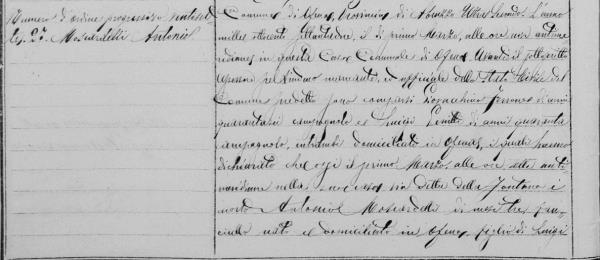 Numero d'ordine progressivo ventisette
27. Moscardelli Antonio
Comune di Ofena, Provincia di Abruzzo Ultra Secondo L'anno
mille ottocento ottantadue, il dì primo Marzo, alle ore nove antime
ridiane in questa Casa Comunale di Ofena Avanti il sottoscritto
Assessore pel Sindaco mancante, ed officiale dello Stato Civile del
Comune predetto sono comparsi Gioacchino di anni
quarantasei campagnolo e Luigi di anni quaranta
campagnolo, entrambi domiciliati in Ofena, i quali hanno
dichiarato che oggi il primo Marzo, alle ore sette anti
meridiane nella sua casa via detta della Fontana è
morto Antonio Moscardelli di mesi tre fan
ciullo nato e domiciliato in Ofena figlio di Luigi